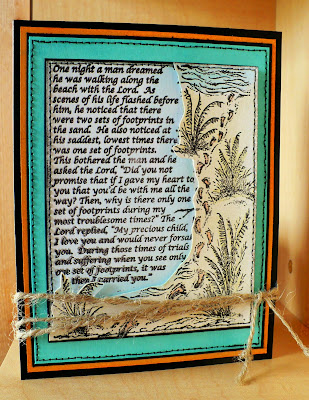 One night a man dreamed
he was walking along the
beach with the Lord. As
scenes of his life flashed before
him, he noticed that there
were two sets of footprints in
the sand. He also noticed at
his saddest, lowest times there
was one set of footprints.
This bothered the man and he
asked the Lord, "Did you not
promise that if I gave my heart to
you that you'd be with me all the
way? Then, why is there only one
set of footprints during my
most troublesome times?" The
Lord replied, "My precious child,
I love you and would never forsake
you. During those times of trials
and suffering when you see only
one set of footprints, it was
then I carried you."